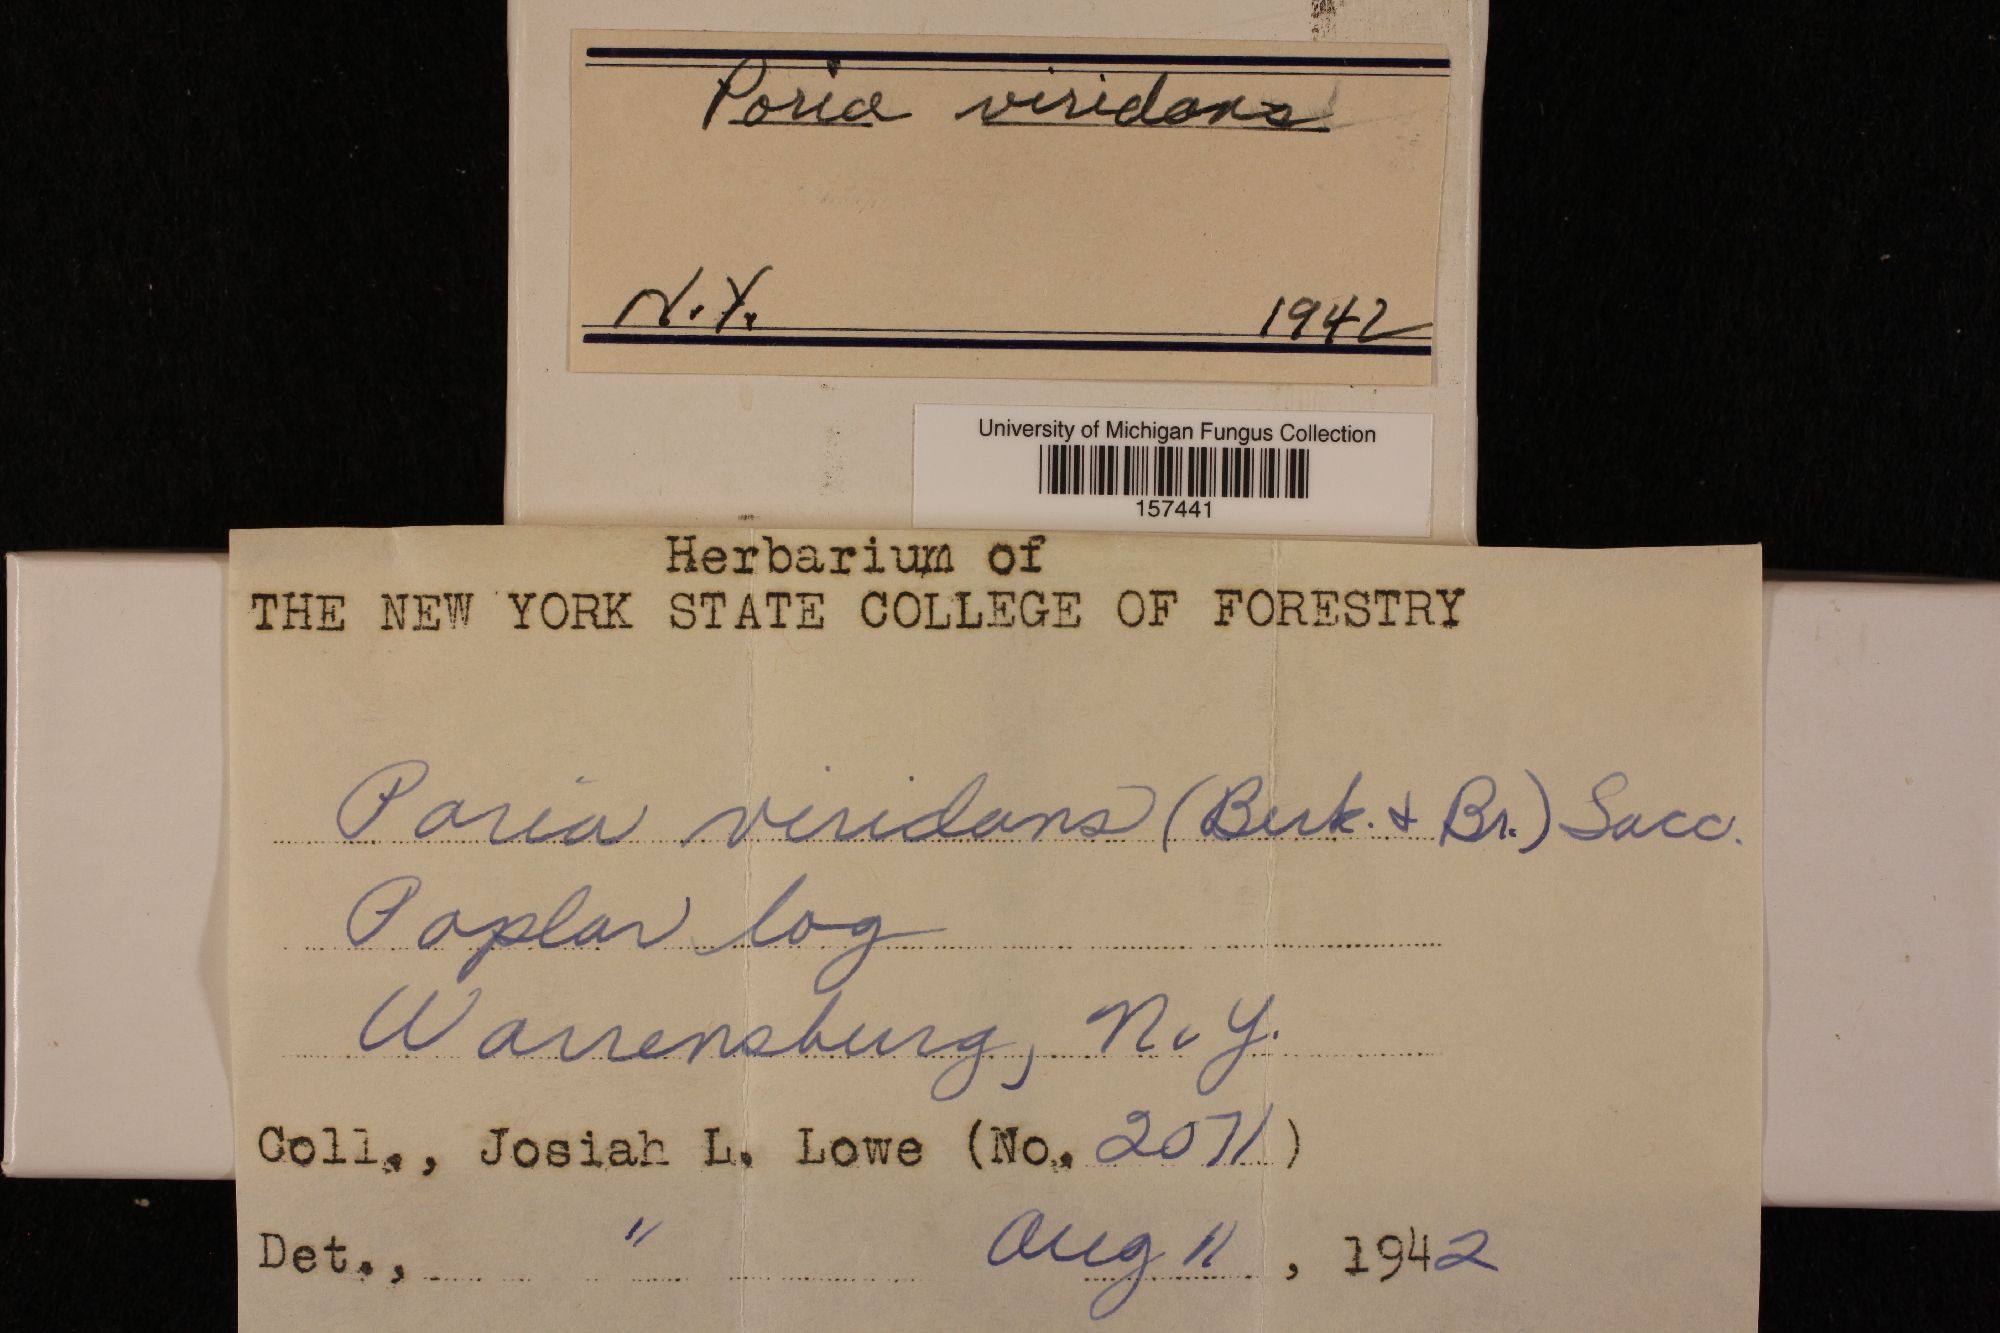 Poria viridans
N.Y. 1942
University of Michigan Fungus Collection
157441
Herbarium of
THE NEW YORK STATE COLLEGE OF FORESTRY
Poria viridans (Berk. & Br.) Sacc.
Poplar log
Warrensburg, N.Y.
Coll., Josiah L. Lowe (No. 2071)
Det., " Aug 11, 1942